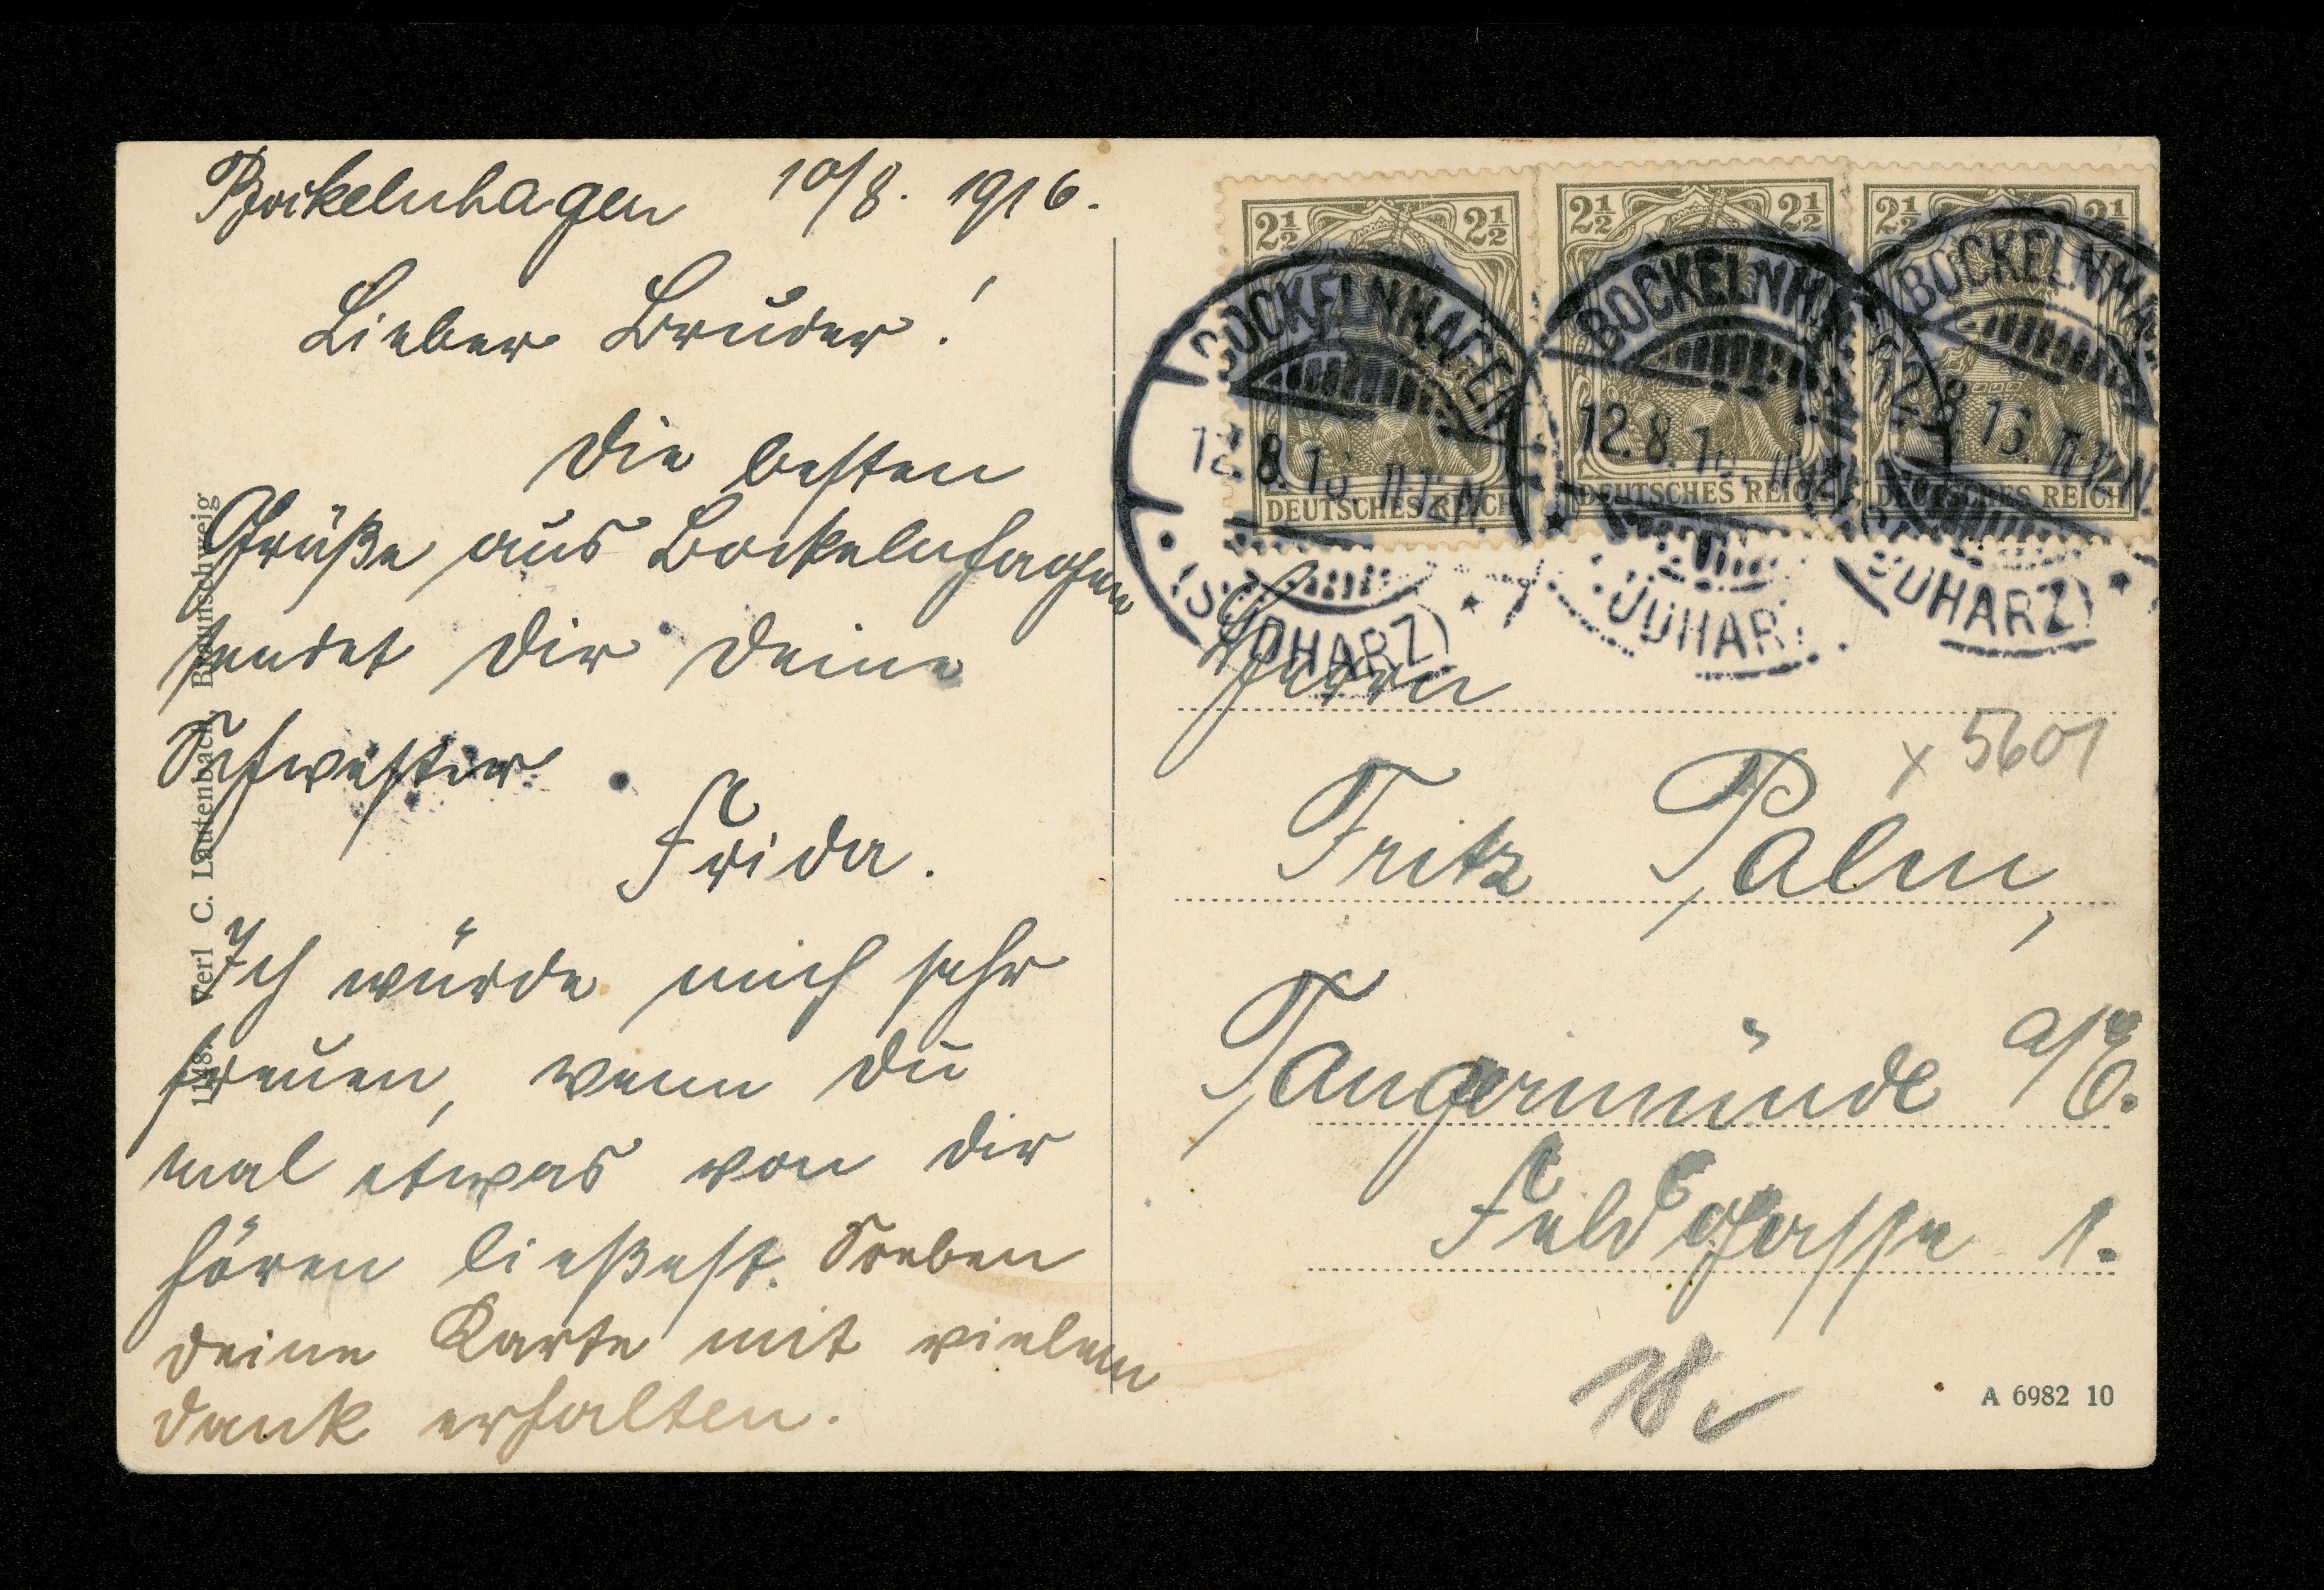 Bockelnhagen 10/8. 1916.
Lieber Bruder!
Die besten
Grüße aus Bockelnhagen
sendet Dir Deine
Schwester
Frida.
Ich würde mich sehr
freuen, wenn Du
mal etwas von Dir
hören ließest. Soeben
Deine Karte mit vielem
Dank erhalten.
1148. Verl C. Lautenbach, Braunschweig
2½ 2½
DEUTSCHES REICH
2½ 2½
DEUTSCHES REICH
2½ 2½
DEUTSCHES REICH
BOCKELNHAGEN
12.8.16. 11-12N.
(SÜDHARZ)
BOCKELNHA
12.8.16. 11-12N.
ÜDHAR
BOCKELNHA
12.8.16. 11-12N.
ÜDHARZ)
Herrn
x 5601
Fritz Palm,
Tangermünde a/E.
Feldgasse 1.
18
A 6982 10